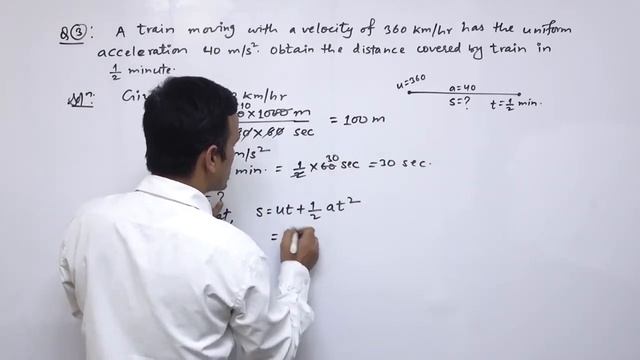 Q③: A train moving with a velocity of 360 km/hr has the uniform
acceleration 40 m/s². Obtain the distance covered by train in
1/2 minute.
Solⁿ: km/hr
10 × 1000 m = 100 m
60 × 60 sec
m/s²
min. = 1/2 × 60 30 sec = 30 sec.
?
s = ut + 1/2 at²
=
u=360
a=40
s=?
t=1/2 min.